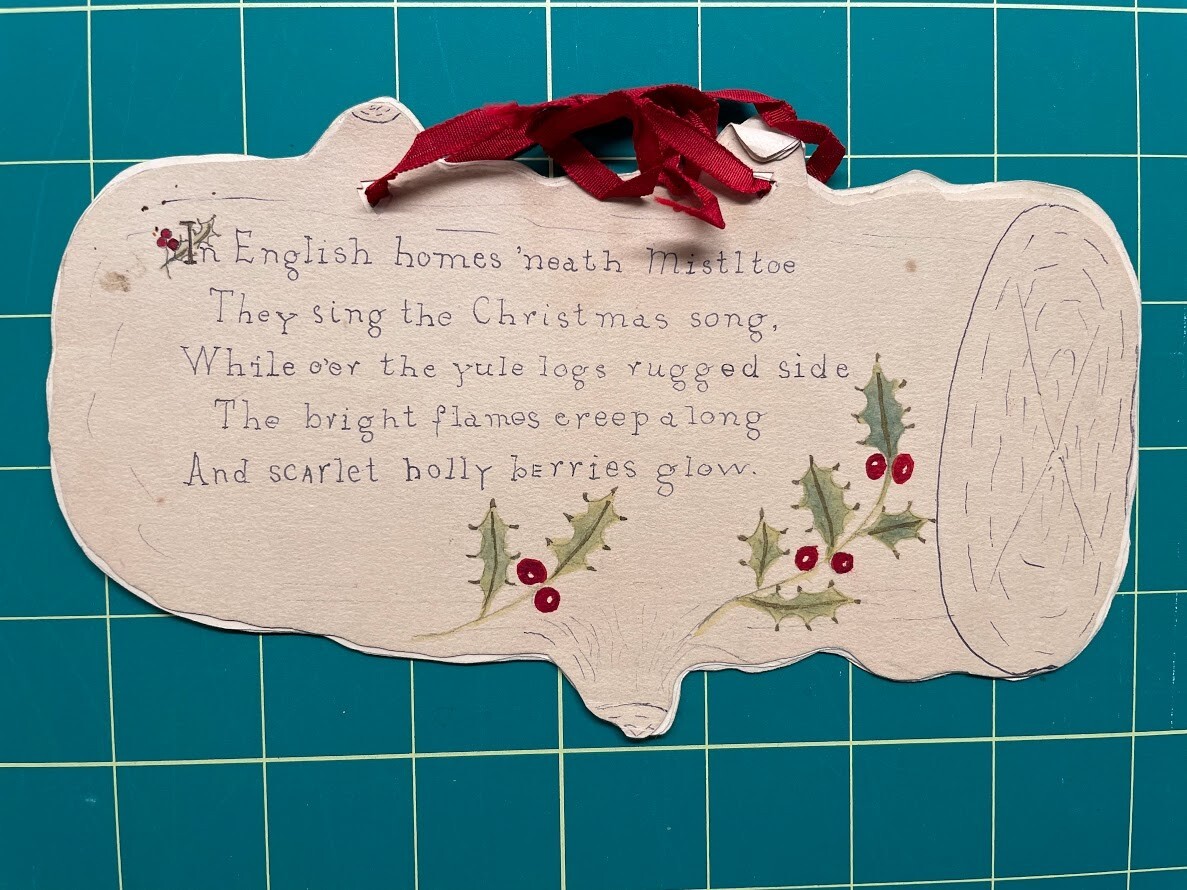 In English homes 'neath Mistltoe
They sing the Christmas song,
While o'er the yule logs rugged side
The bright flames creep along
And scarlet holly berries glow.